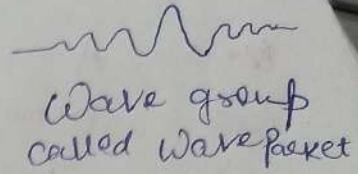 Wave group
called Wave Packet